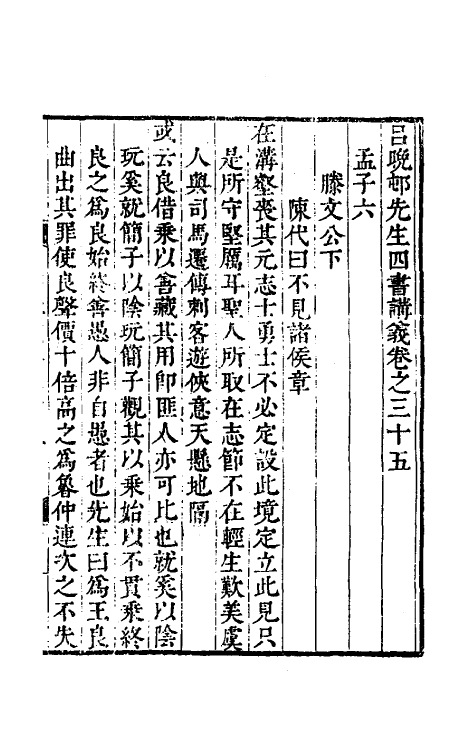 呂晚邨先生四書講義卷之三十五
孟子六
滕文公下
陳代曰不見諸侯章
在溝壑喪其元志士勇士不必定設此境定立此見只
是所守堅厲耳聖人所取在志節不在輕生歎美虞
人與司馬遷傳刺客遊俠意天懸地隔
或云良借乘以善藏其用卽匪人亦可比也就奚以陰
玩奚就簡子以陰玩簡子觀其以乘始以不貫乘終
良之爲良始終善愚人非自愚者也先生曰爲王良
曲出其罪使良聲價十倍高之爲魯仲連次之不失